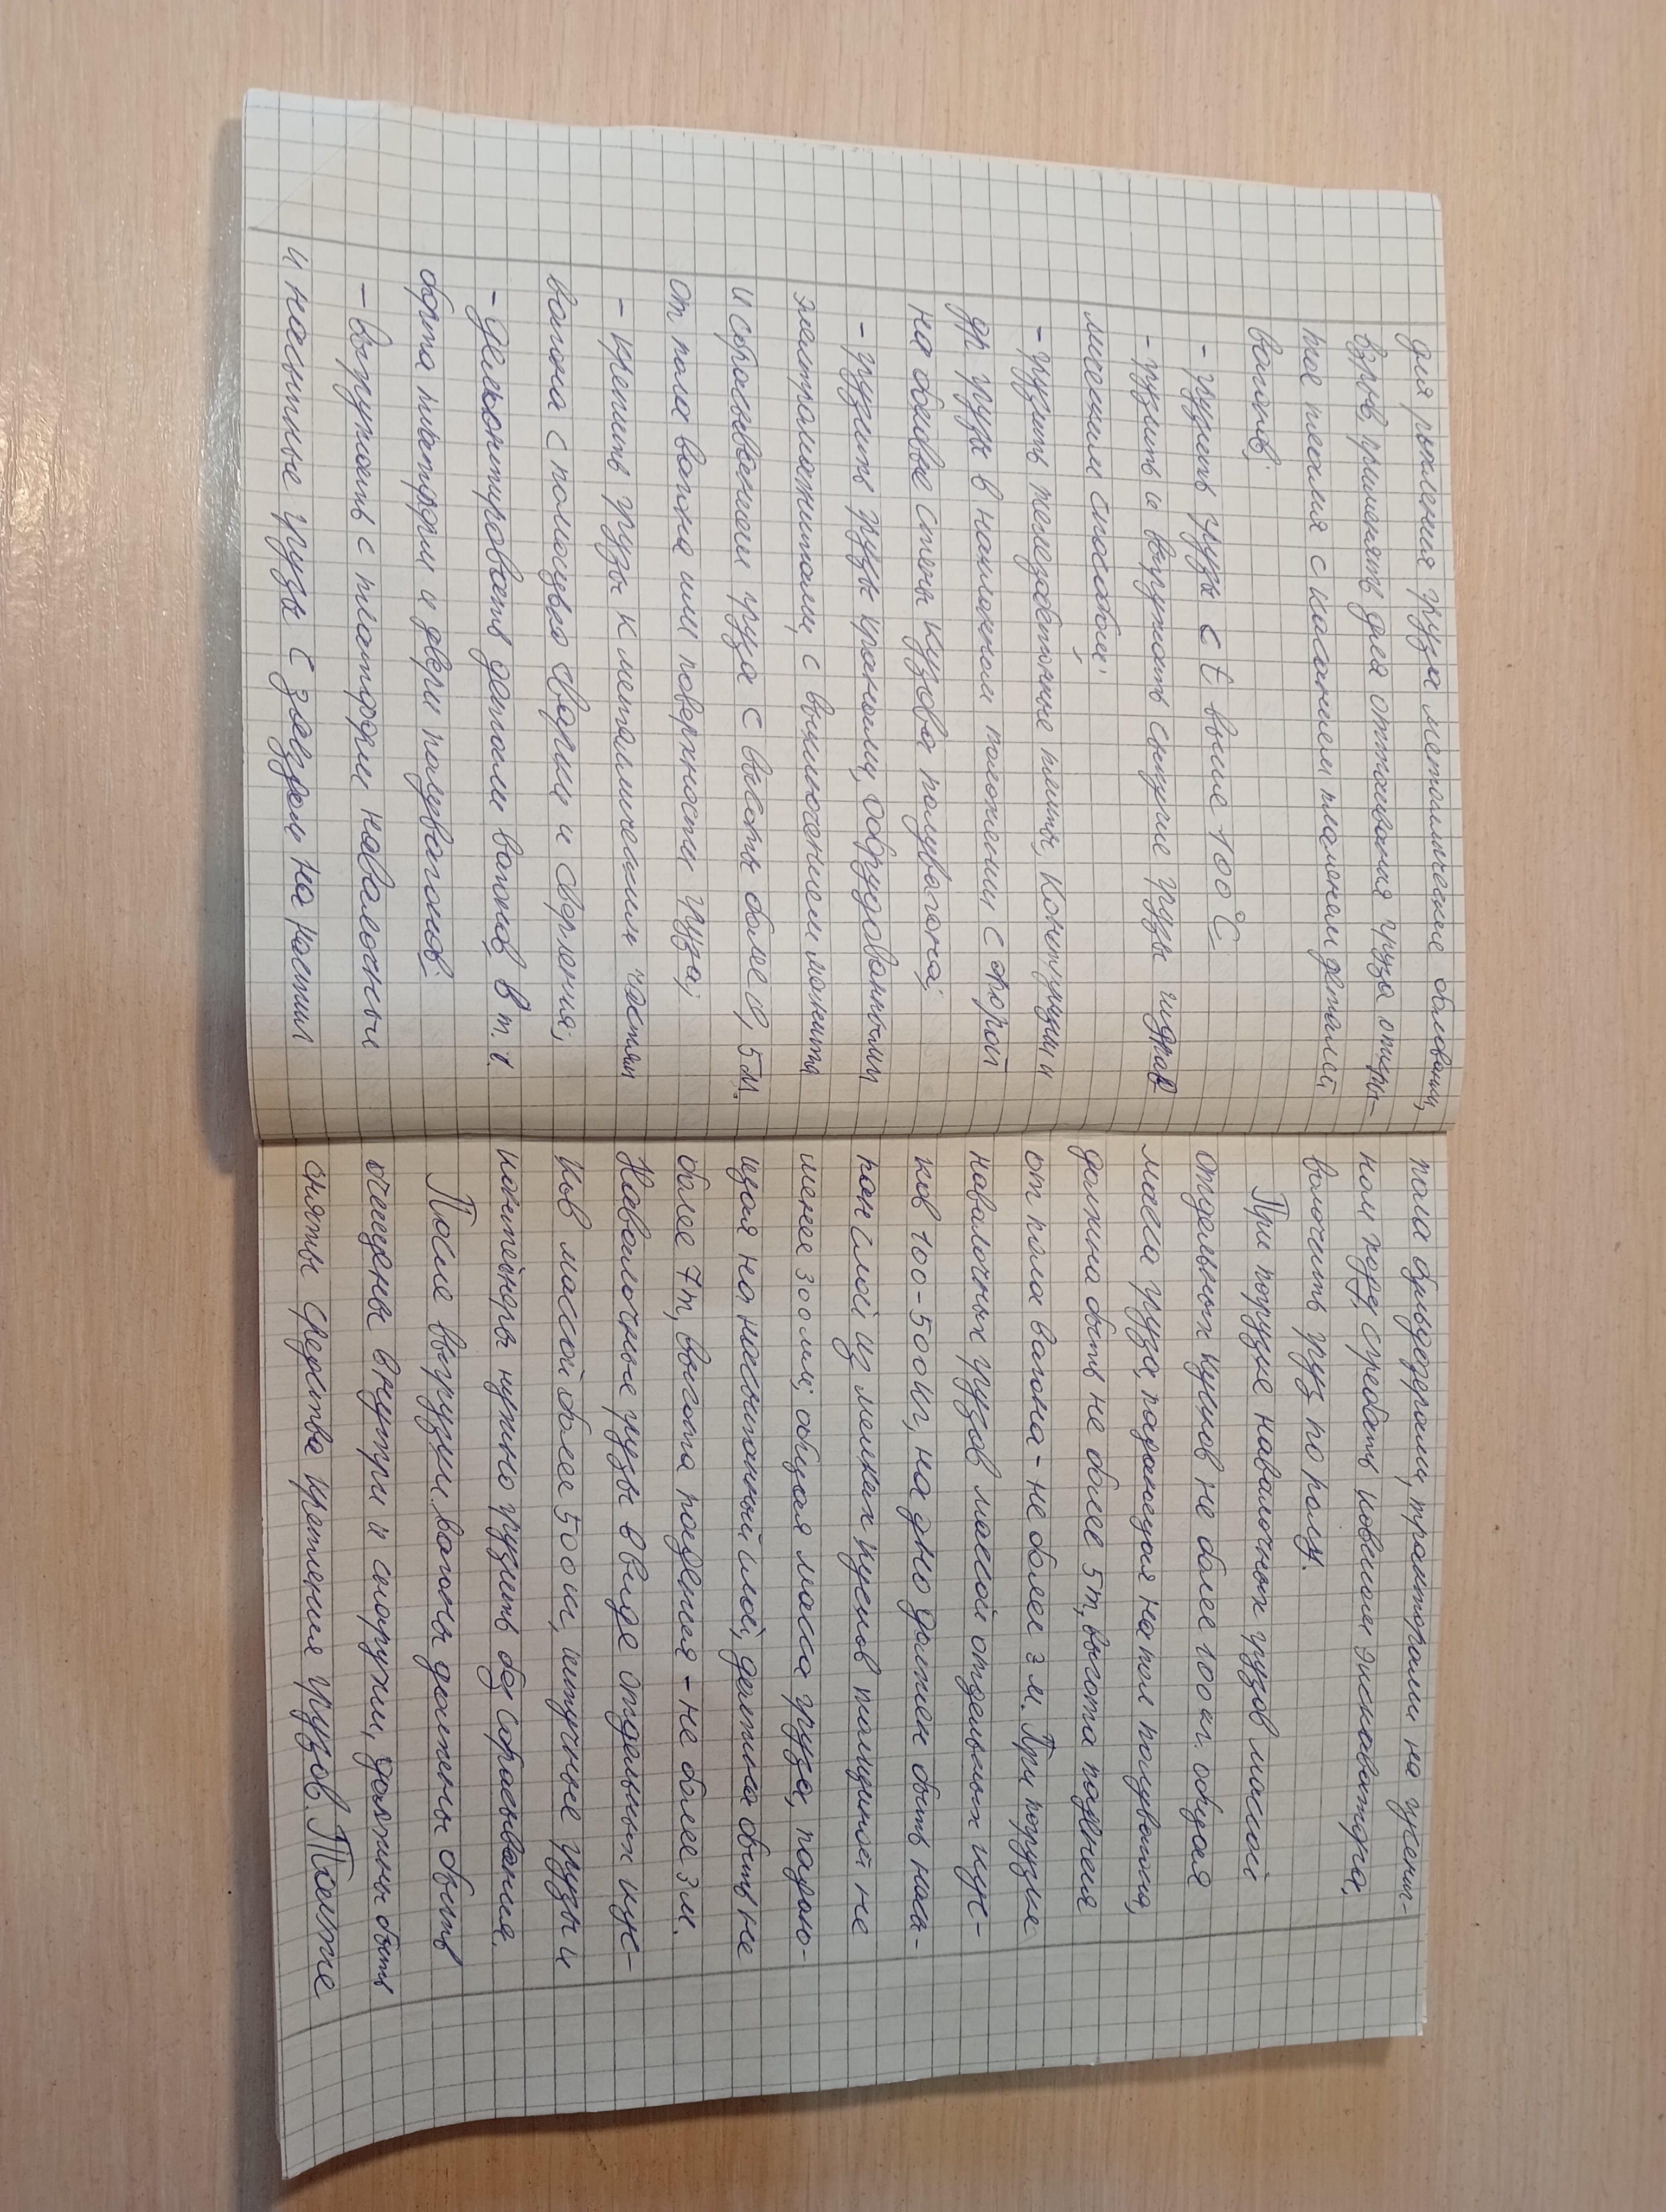 для рыхления груза металлические болванки,
взрыв, применять для оттаивания груза откры-
тое пламя с касанием пламенем деталей
вагонов;
- грузить грузы с t выше 100°C;
- грузить и выгружать сыпучие грузы гидрав
лическим способом;
- грузить железобетонные плиты, конструкции и
др. грузы в наклонном положении с опорой
на боковые стены кузова полувагона;
- грузить грузы кранами, оборудованными
электромагнитами, с выключением магнита
и сбрасыванием груза с высоты более 0,5м.
от пола вагона или поверхности груза;
- крепить грузы к металлическим частям
вагона с помощью сварки и сверления;
- демонтировать детали вагонов, в т.ч.
борта платформ и двери полувагонов;
- выгружать с платформ навалочные
и насыпные грузы с заездом на настил
пола бульдозерами, тракторами на гусенич-
ном ходу, сгребать ковшом экскаватора,
волочить груз по полу.
При погрузке навалочных грузов массой
отдельных кусков не более 100 кг. общая
масса груза, падающая на пол полувагона,
должна быть не более 5т, высота падения
от пола вагона - не более 3 м. При погрузке
навалочных грузов массой отдельных кус-
ков 100-500кг, на дно должен быть насы-
пан слой из мелких кусков толщиной не
менее 300мм; общая масса груза, падаю-
щая на насыпанный слой, должна быть не
более 7т, высота падения - не более 3м.
Навалочные грузы в виде отдельных кус-
ков массой более 500кг, штучные грузы и
контейнеры нужно грузить без сбрасывания.
После выгрузки вагоны должны быть
очищены внутри и снаружи, должны быть
сняты средства крепления грузов. Также